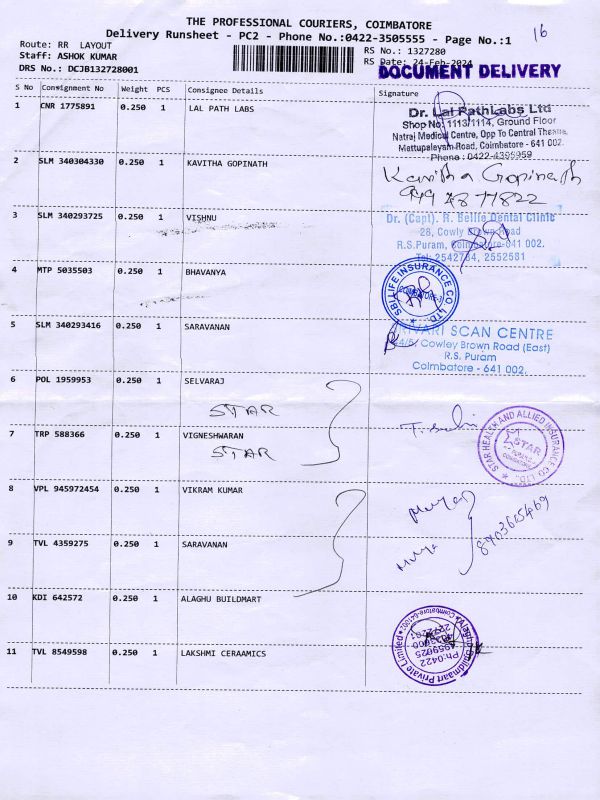 THE PROFESSIONAL COURIERS, COIMBATORE
16
Delivery Runsheet - PC2 - Phone No.:0422-3505555 - Page No.:1
Route: RR LAYOUT
RS No.: 1327280
Staff: ASHOK KUMAR
RS Date: 24-Feb-2024
DRS No.: DCJB132728001
DOCUMENT DELIVERY
S No Consignment No Weight PCS Consignee Details Signature
1 CNR 1775891 0.250 1 LAL PATH LABS
Dr. Lal PathLabs Ltd
Shop No: 1113/1114, Ground Floor
Natraj Medical Centre, Opp To Central Theatre,
Mettupalayam Road, Coimbatore - 641 002.
Phone : 0422-4395959
2 SLM 340304330 0.250 1 KAVITHA GOPINATH
Kavitha Gopinath
3 SLM 340293725 0.250 1 VISHNU
Dr. (Capt). R. Bellie Dental Clinic
28, Cowly Brown Road
R.S.Puram, Coimbatore-641 002.
Tel: 2542784, 2552581
4 MTP 5035503 0.250 1 BHAVANYA
SBI LIFE INSURANCE CO. LTD.
COIMBATORE-3
5 SLM 340293416 0.250 1 SARAVANAN
SCAN CENTRE
Cowley Brown Road (East)
R.S. Puram
Coimbatore - 641 002.
6 POL 1959953 0.250 1 SELVARAJ
STAR
7 TRP 588366 0.250 1 VIGNESHWARAN
STAR
STAR HEALTH AND ALLIED INSURANCE CO. LTD.
STAR
8 VPL 945972454 0.250 1 VIKRAM KUMAR
9 TVL 4359275 0.250 1 SARAVANAN
10 KDI 642572 0.250 1 ALAGHU BUILDMART
Alaghu Buildmaart Private Limited
Ph:0422
11 TVL 8549598 0.250 1 LAKSHMI CERAAMICS